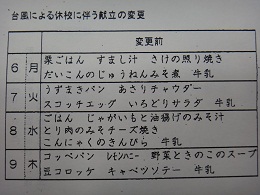 台風による休校に伴う献立の変更
変更前
6 月 栗ごはん すまし汁 さけの照り焼き
だいこんのじゅうねんみそ煮 牛乳
7 火 うずまきパン あさりチャウダー
スコッチエッグ いろどりサラダ 牛乳
8 水 ごはん じゃがいもと油揚げのみそ汁
とり肉のみそチーズ焼き
こんにゃくのきんぴら 牛乳
9 木 コッペパン レモンハニー 野菜ときのこのスープ
豆コロッケ キャベツソテー 牛乳